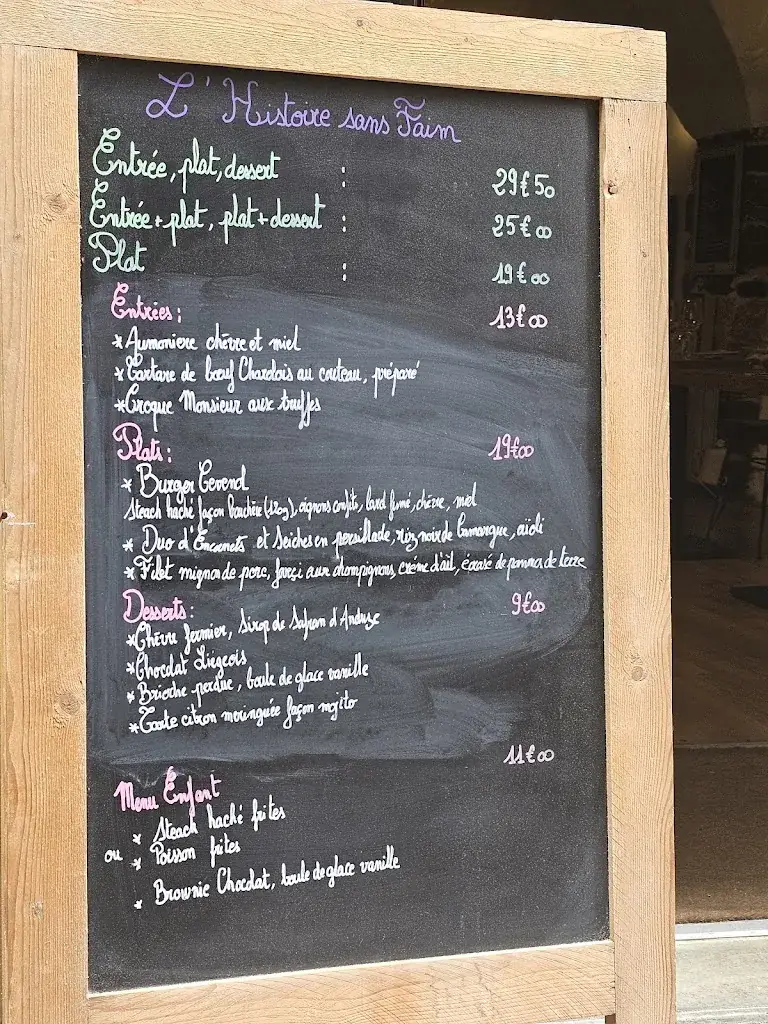 L'Histoire sans Faim
Entrée, plat, dessert : 29€50
Entrée + plat, plat + dessert : 25€00
Plat : 19€00
Entrées : 13€00
* Aumoniere chèvre et miel
* Tartare de bœuf Charolais au couteau, préparé
* Croque Monsieur aux truffes
Plats : 19€00
* Burger Cevenol
Steack haché façon bouchère (180g), oignons confits, lard fumé, chèvre, miel
* Duo d'Encornets et Seiches en persillade, riz noir de Camargue, aïoli
* Filet mignon de porc, farçi aux champignons, crème d'ail, écrasé de pomme de terre
Desserts : 9€00
* Chèvre fermier, Sirop de Safran d'Anduze
* Chocolat Liegeois
* Brioche perdue, boule de glace vanille
* Tarte citron meringuée façon mojito
11€00
Menu Enfant
* Steack haché frites
ou * Poisson frites
* Brownie Chocolat, boule de glace vanille